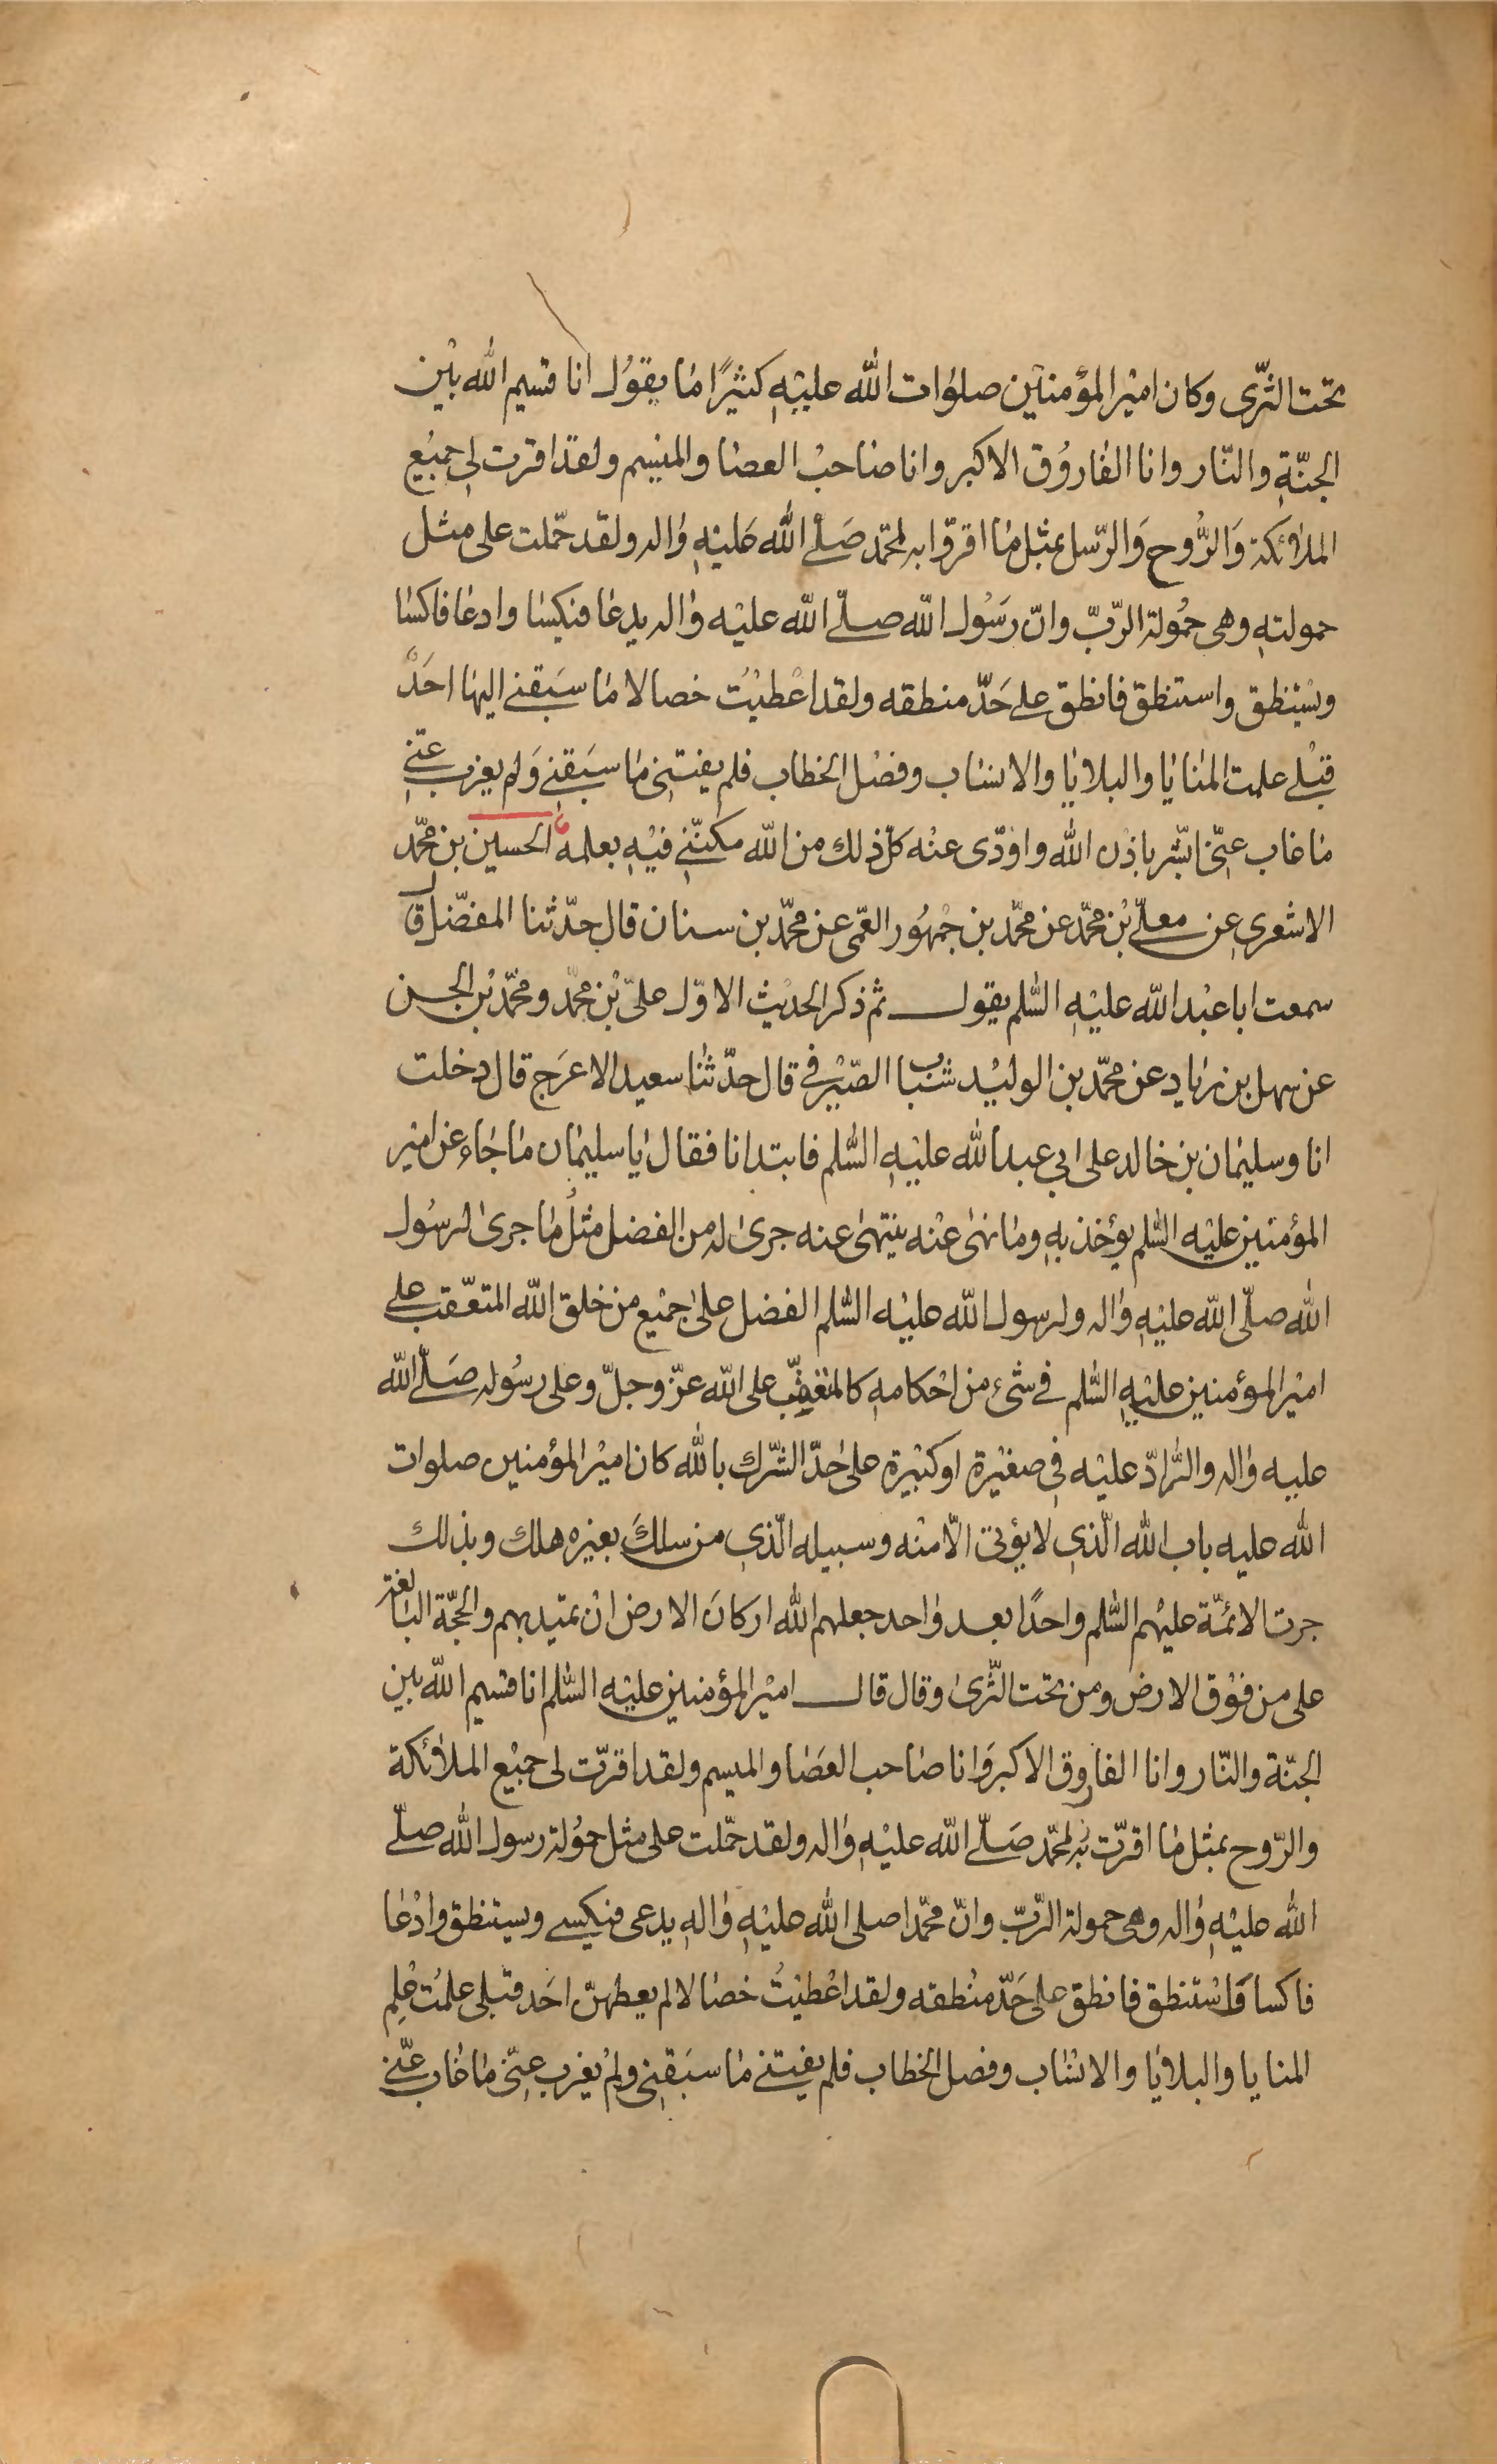 تحت الثّرى وكان امير المؤمنين صلوات الله عليهِ كثيرًا ما يقول انا قسيم الله بين
الجنّةِ والنّار وانا الفاروُق الاكبر وانا صاحبُ العصا والميسم ولقد اقرت لى جميع
الملائكة وَالرُّوح وَالرّسل بمثل ما اقرّوا به لمحمّد صَلّے الله عليهِ واله ولقد حمّلت على مثل
حمولتهِ وهى حمُولة الرّبّ وانّ رَسُول الله صلّے الله عليه واله يدعا فيكسا وادعا فاكسا
ويُستنطق واستنطق فانطق على حَدّ منطقه ولقد اعْطيْت خصالا ما سبَقنے اليها احَدٌ
قبْلے علمت المنايا والبلايا والانساب وفصْل الخطاب فلم يفتنى ما سبَقنے وَلم يعزب عنّے
ما غاب عنّى ابشّر باذْن الله واؤدّى عنْه كلّ ذلك من الله مكنّنے فيْهِ بعلمهِ الحسين بن محمّد
الاشعرى عن معلّے بْن محمّد عن محمّد بن جمْهُور العمّى عن محمّد بن سنان قال حدّثنا المفضّل قال
سمعت ابا عبْد الله عليْهِ السّلم يقول ثم ذكر الحديْث الاوّل علىّ بْن محمّد ومحمّد بْن الحسن
عن سهل بن زياد عن محمّد بن الوليْد شباب الصّيْرفے قال حدّثنا سعيد الاعرَج قال دخلت
انا وسليمان بن خالد على ابي عبد الله عليْهِ السّلم فابتدانا فقال يا سليمان ما جاء عن امير
المؤمنين عليْه السّلم يؤخذ بهِ وما نهى عنْه ينتهى عنه جرى له من الفضل مثلُ ما جرى لرسُول
الله صلّى الله عليْهِ واله ولرسول الله عليْه السّلم الفضل على جميْع من خلق الله المتعقّب على
اميْر المؤمنين عليْهِ السّلم فے شىء من احْكامهِ كالمتعقّب على الله عزّ وجلّ وعلى رسُوله صَلّے الله
عليه واله والرّادّ عليْه فى صغيْرة او كبيْرة على حدّ الشّرك بالله كان اميْر المؤمنين صلوات
الله عليه باب الله الّذى لا يؤتى الّا منْه وسبيله الّذى من سلكَ بغيره هلك وبذلك
جرت الائمّة عليْهم السّلم واحدًا بعد واحد جعلهم الله اركان الارض انْ تميد بهم والحجّة البالغة
على من فوْق الارض ومن تحت الثّرى وقال قال اميْر المؤمنين عليْه السّلم انا قسيم الله بين
الجنّة والنّار وانا الفاروق الاكبر وَانا صاحب العصَا والميسم ولقد اقرّت لى جميْع الملائكة
والرّوح بمثل ما اقرّت به لمحمّد صَلّے الله عليْهِ واله ولقد حمّلت على مثل حمُولة رسول الله صلّے
الله عليْهِ واله وهى حمولة الرّبّ وانّ محمّدا صلى الله عليْهِ والهِ يدعى فيكسے ويستنطق وادْعا
فاكسا وَاسْتنطق فانطق على حَدّ منْطقه ولقد اعْطيْتُ خصالا لم يعطهنّ احَد قبْلى علمْت علم
المنايا والبلايا والانساب وفصل الخطاب فلم يفتنے ما سبَقنى ولم يعزب عنّى ما غاب عنّے